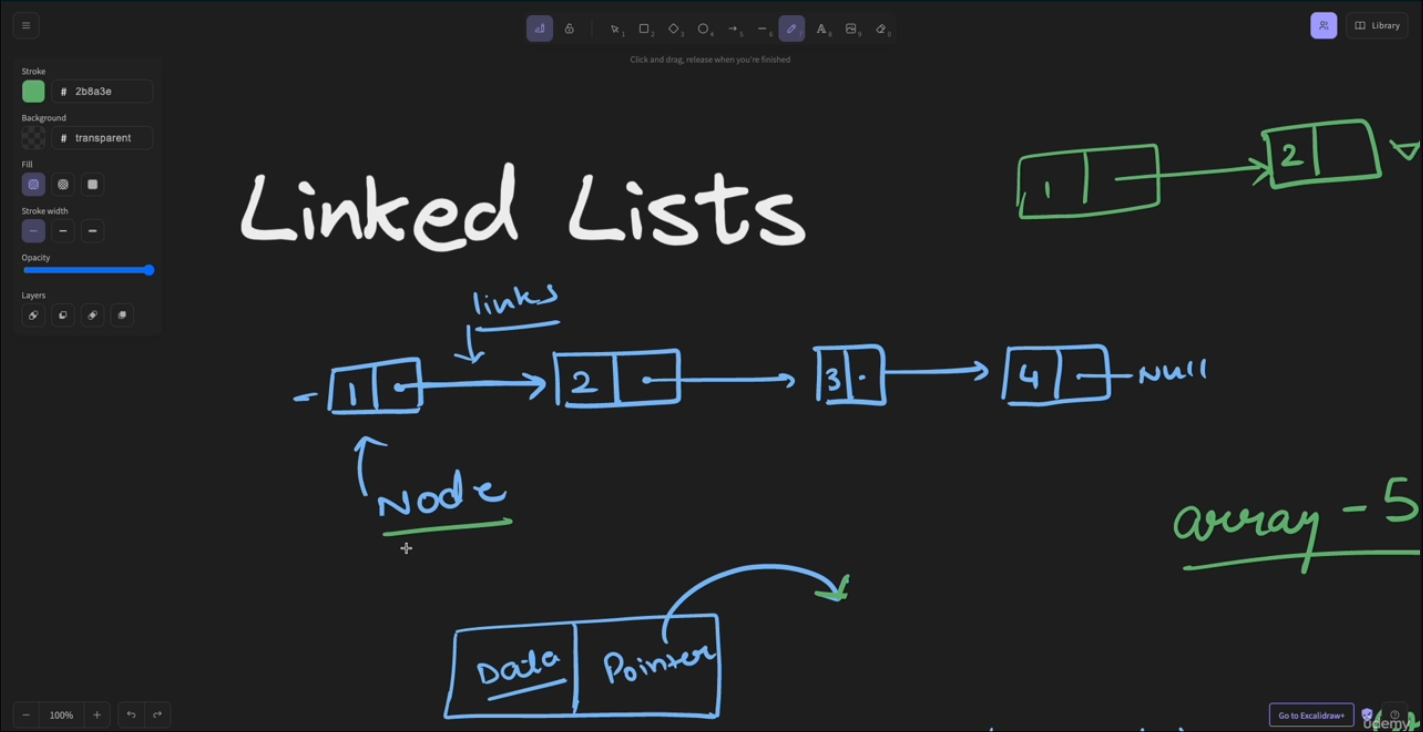 Library
Click and drag, release when you're finished
Stroke
# 2b8a3e
Background
# transparent
Fill
Stroke width
Opacity
Layers
Linked Lists
1
2
links
1
2
3
4
Null
Node
array - 5
Data
Pointer
100%
Go to Excalidraw+
udemy